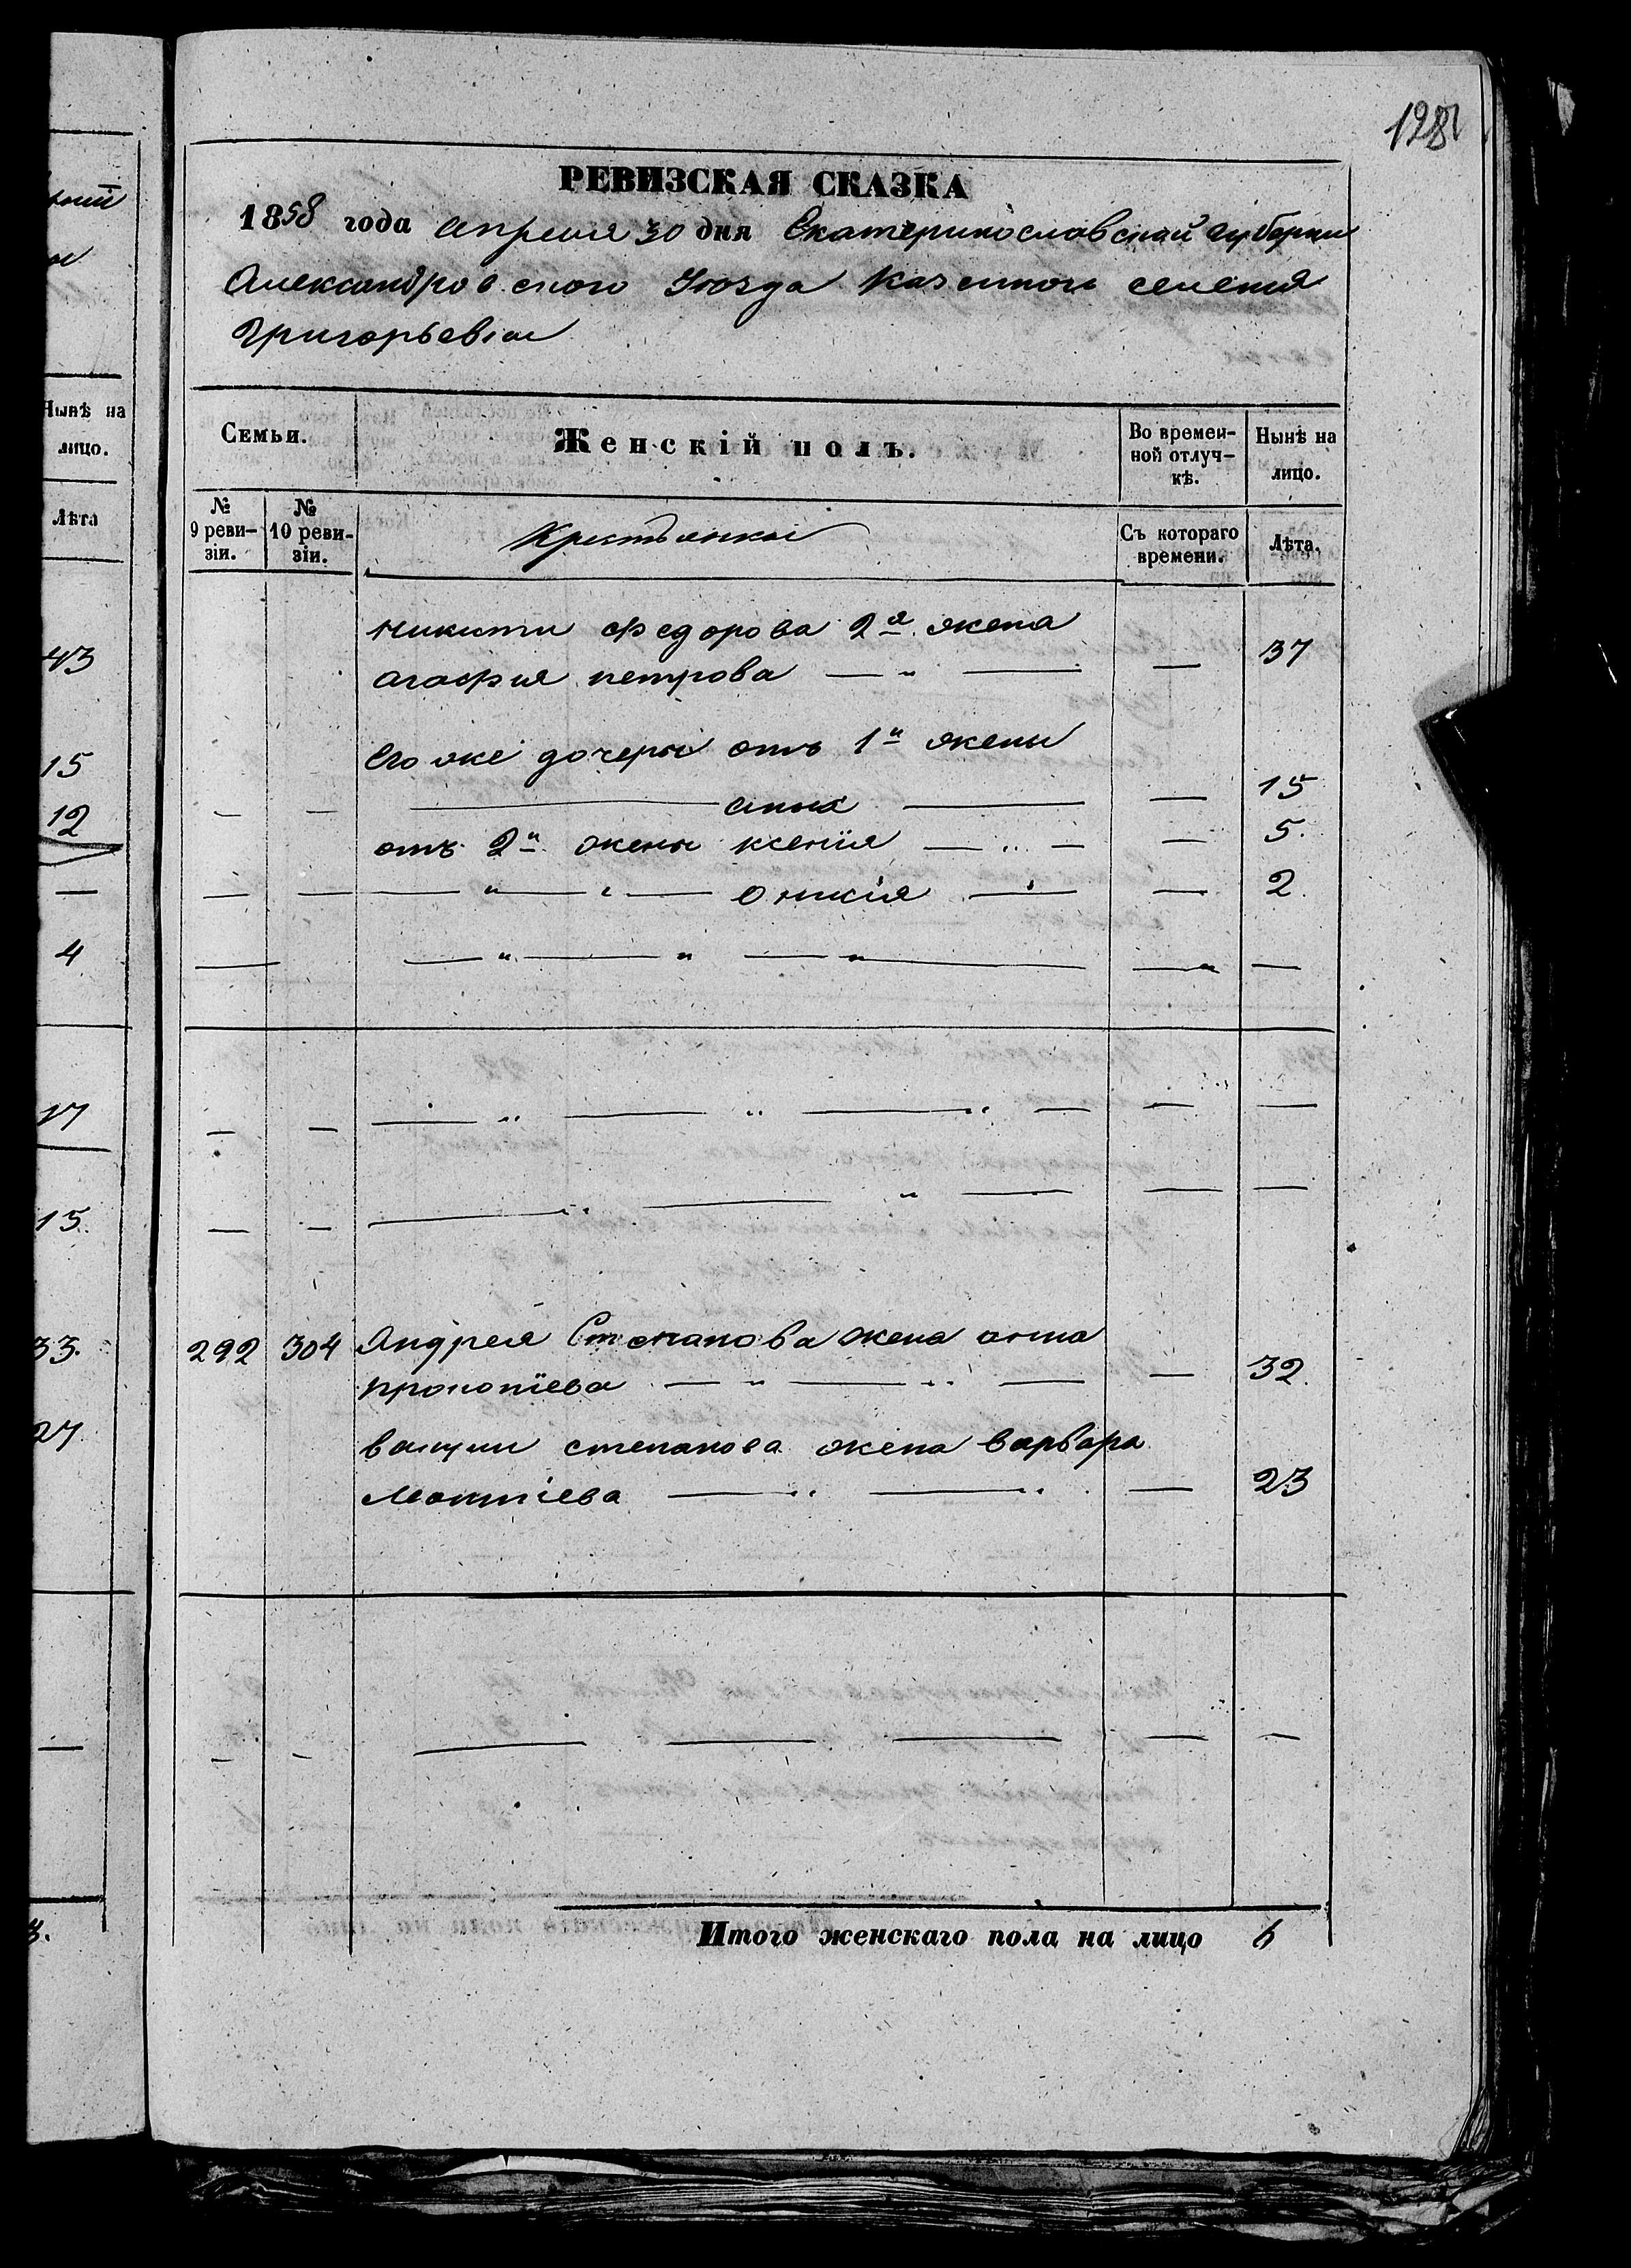 1281
РЕВИЗСКАЯ СКАЗКА
1858 года апреля 30 дня Екатеринославской губернии
Александровского Уѣзда казенного селения
Григорьевки
Нынѣ на
лицо.
Лѣта
43
15
12
4
17
15.
33.
27
Семьи.
Женскій полъ.
Во времен-
ной отлуч-
кѣ.
Нынѣ на
лицо.
№
9 реви-
зіи.
№
10 реви-
зіи.
Крестьянки
Съ котораго
времени.
Лѣта.
Никиты Федорова 2я жена
агафия петрова — " — — 37
Его же дочери отъ 1й жены
— — — анна — — 15
отъ 2й жены ксенія — " — — 5.
— — — " — " — — " — — 2.
— — " — " — — " — — " —
— — — " — " — " — — —
— — — " — " — — —
292 304 Андрея Степанова жена анна
прокопіева — " — " — — 32.
степанова жена варвара
— " — " — 23
— — — — — — —
Итого женскаго пола на лицо 6